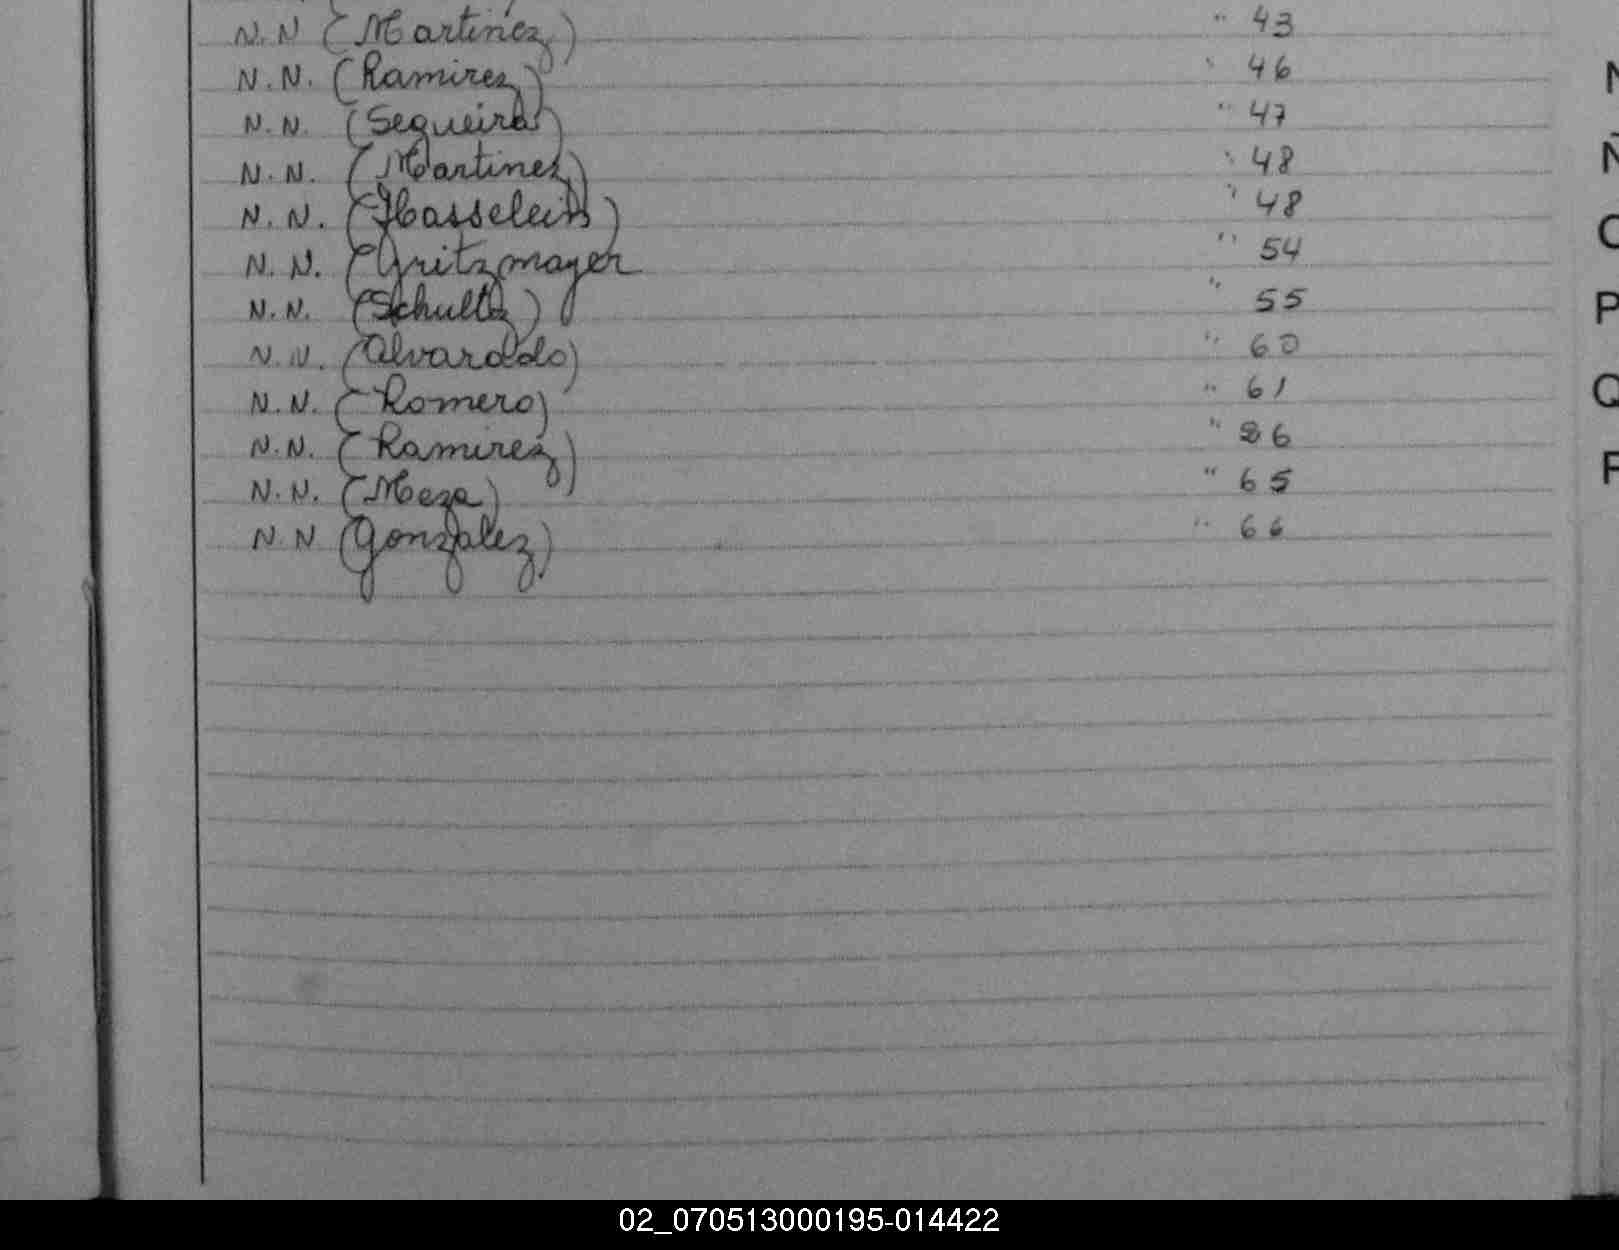 N.N (Martinez) " 43
N.N. (Ramirez) " 46
N.N. (Sequeira) " 47
N.N. (Martinez) " 48
N.N. (Hasselein) " 48
N.N. (Gritzmayer " 54
N.N. (Schultz) " 55
N.N. (Alvarado) " 60
N.N. (Romero) " 61
N.N. (Ramirez) " 26
N.N. (Meza) " 65
N.N (Gonzalez) " 66
N
Ñ
O
P
Q
R
02_070513000195-014422